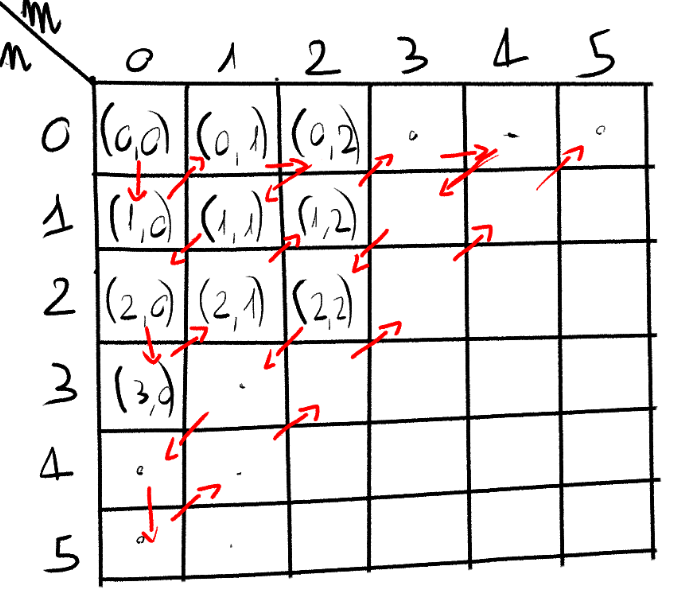 m
n
0 1 2 3 4 5
0 (0,0) (0,1) (0,2) . . .
1 (1,0) (1,1) (1,2)
2 (2,0) (2,1) (2,2)
3 (3,0) .
4 . .
5 . .